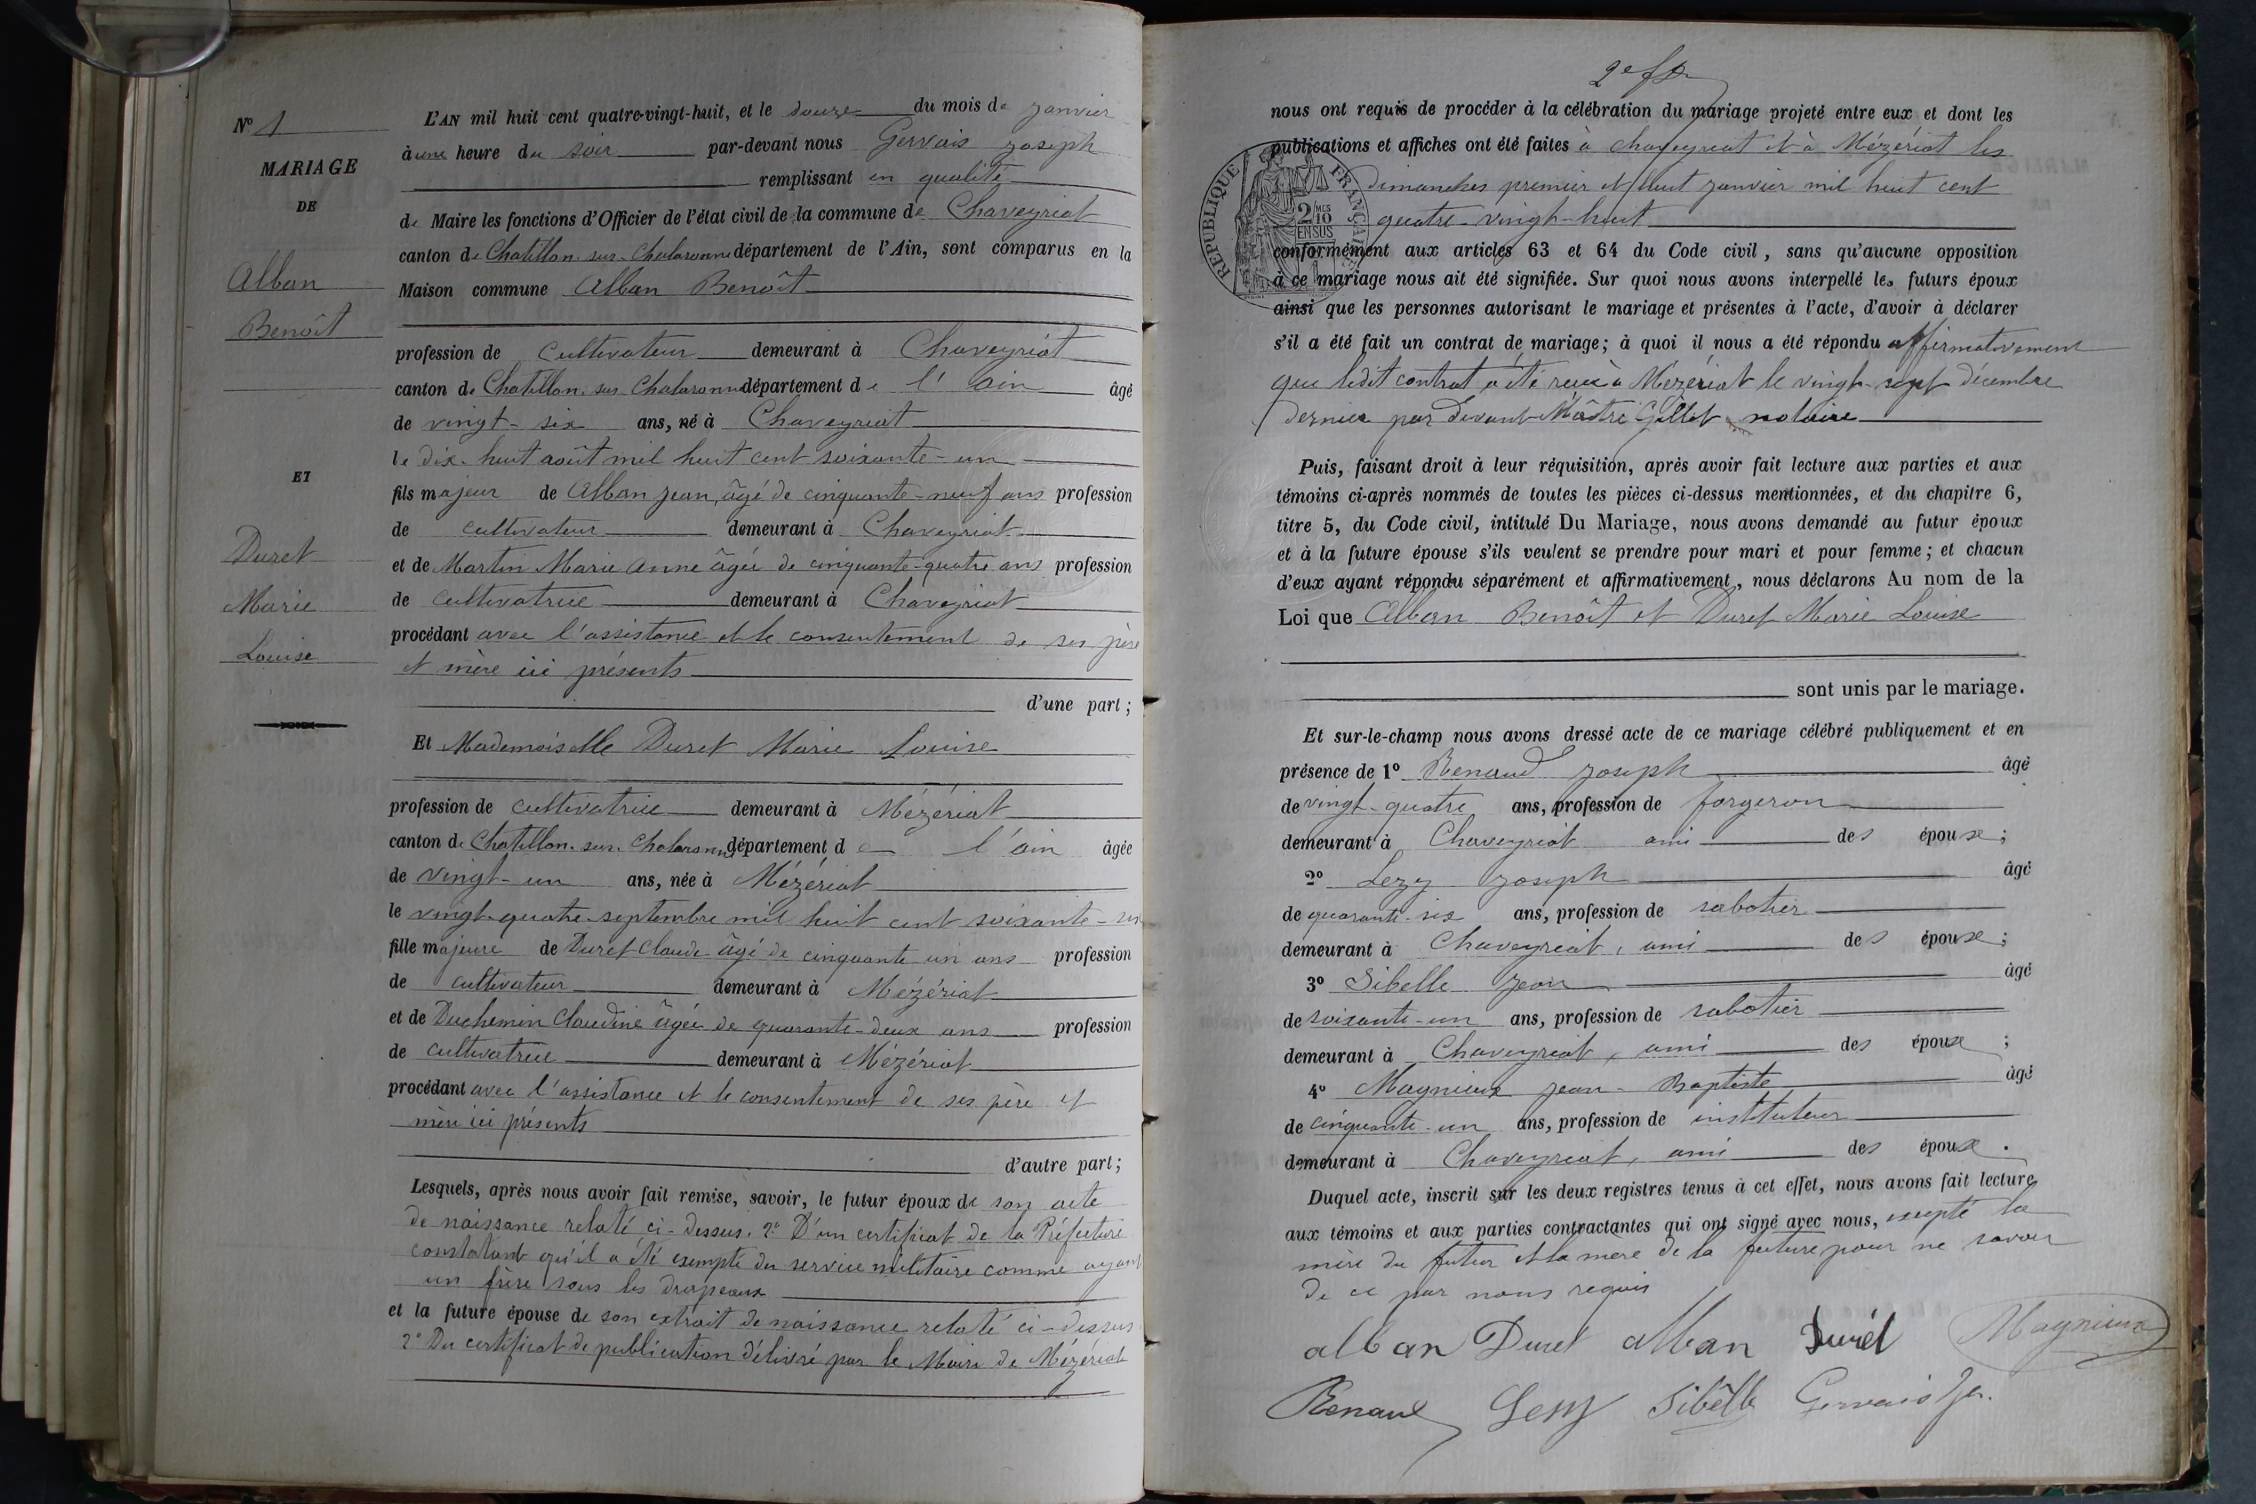 N° 1
MARIAGE
DE
Alban
Benoît
ET
Duret
Marie
Louise
L'AN mil huit cent quatre-vingt-huit, et le douze du mois de janvier
à une heure du soir par-devant nous Gervais Joseph
remplissant en qualité
de Maire les fonctions d'Officier de l'état civil de la commune de Chaveyriat
canton de Chatillon-sur-Chalaronne département de l'Ain, sont comparus en la
Maison commune Alban Benoît
profession de cultivateur demeurant à Chaveyriat
canton de Chatillon-sur-Chalaronne département de l'Ain âgé
de vingt-six ans, né à Chaveyriat
le dix-huit août mil huit cent soixante-un
fils majeur de Alban Jean, âgé de cinquante-neuf ans profession
de cultivateur demeurant à Chaveyriat
et de Martin Marie Anne âgée de cinquante-quatre ans profession
de cultivatrice demeurant à Chaveyriat
procédant avec l'assistance et le consentement de ses père
et mère ici présents
d'une part;
Et Mademoiselle Duret Marie Louise
profession de cultivatrice demeurant à Mézériat
canton de Chatillon-sur-Chalaronne département de l'Ain âgée
de vingt-un ans, née à Mézériat
le vingt-quatre septembre mil huit cent soixante-six
fille majeure de Duret Claude âgé de cinquante-un ans profession
de cultivateur demeurant à Mézériat
et de Duchemin Claudine âgée de quarante-deux ans profession
de cultivatrice demeurant à Mézériat
procédant avec l'assistance et le consentement de ses père et
mère ici présents
d'autre part;
Lesquels, après nous avoir fait remise, savoir, le futur époux de son acte
de naissance relaté ci-dessus. 2° D'un certificat de la Préfecture
constatant qu'il a été exempté du service militaire comme ayant
un frère sous les drapeaux
et la future épouse de son extrait de naissance relaté ci-dessus
2° Du certificat de publication délivré par le Maire de Mézériat
2e
nous ont requis de procéder à la célébration du mariage projeté entre eux et dont les
publications et affiches ont été faites à Chaveyriat et à Mézériat les
dimanches premier et huit janvier mil huit cent
quatre-vingt-huit
RÉPUBLIQUE FRANÇAISE
2 MES
10
EN SUS
conformément aux articles 63 et 64 du Code civil, sans qu'aucune opposition
à ce mariage nous ait été signifiée. Sur quoi nous avons interpellé les futurs époux
ainsi que les personnes autorisant le mariage et présentes à l'acte, d'avoir à déclarer
s'il a été fait un contrat de mariage; à quoi il nous a été répondu affirmativement
que ledit contrat a été reçu à Mézériat le vingt-sept décembre
dernier par devant Maître Gillet notaire
Puis, faisant droit à leur réquisition, après avoir fait lecture aux parties et aux
témoins ci-après nommés de toutes les pièces ci-dessus mentionnées, et du chapitre 6,
titre 5, du Code civil, intitulé Du Mariage, nous avons demandé au futur époux
et à la future épouse s'ils veulent se prendre pour mari et pour femme; et chacun
d'eux ayant répondu séparément et affirmativement, nous déclarons Au nom de la
Loi que Alban Benoît et Duret Marie Louise
sont unis par le mariage.
Et sur-le-champ nous avons dressé acte de ce mariage célébré publiquement et en
présence de 1° Renaud Joseph âgé
de vingt-quatre ans, profession de forgeron
demeurant à Chaveyriat ami des époux;
2° Lezy Joseph âgé
de quarante-six ans, profession de sabotier
demeurant à Chaveyriat, ami des époux;
3° Sibelle Jean âgé
de soixante-un ans, profession de sabotier
demeurant à Chaveyriat, ami des époux;
4° Magnieux Jean-Baptiste âgé
de cinquante-un ans, profession de instituteur
demeurant à Chaveyriat, ami des époux.
Duquel acte, inscrit sur les deux registres tenus à cet effet, nous avons fait lecture
aux témoins et aux parties contractantes qui ont signé avec nous, excepté la
mère du futur et la mère de la future pour ne savoir
de ce par nous requis
alban Duret alban Duret Magnieux
Renaud Lezy Sibelle Gervais